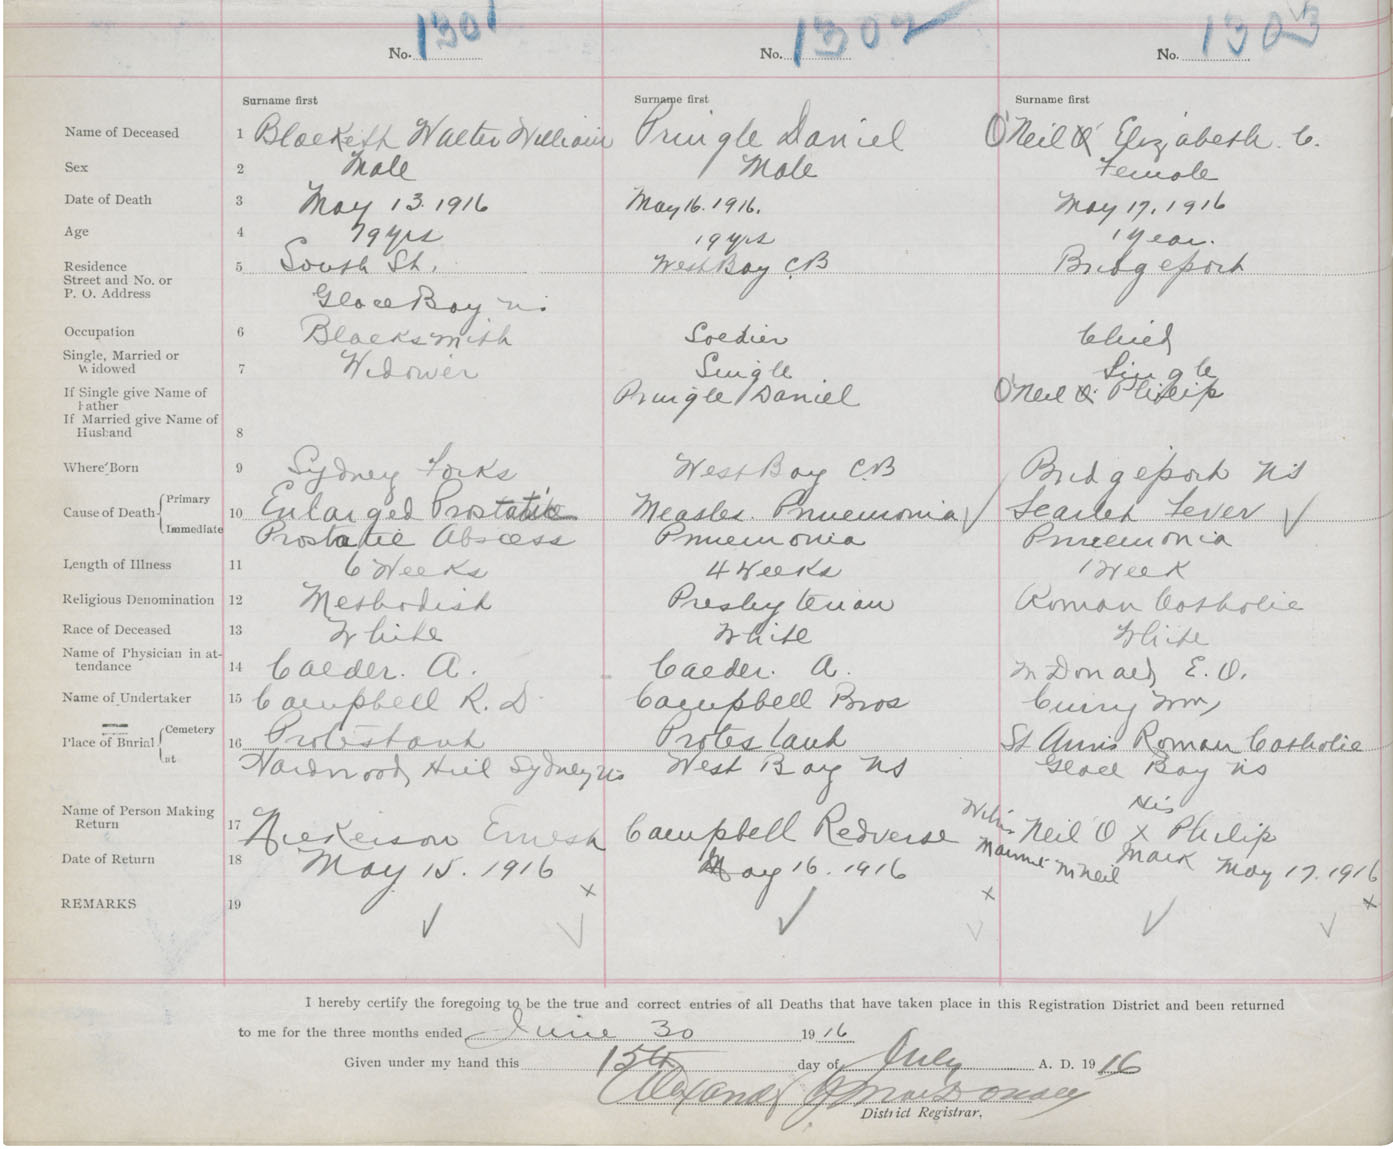 No. 1301 No. 1302 No. 1303
Surname first Surname first Surname first
Name of Deceased 1 Walter William Pringle Daniel O'Neil Elizabeth C.
Sex 2 Male Male Female
Date of Death 3 May 13. 1916 May 16. 1916. May 17, 1916
Age 4 79 yrs 19 yrs 1 year.
Residence 5 South St. West Bay C.B Bridgeport
Street and No. or
P. O. Address Glace Bay ns
Occupation 6 Blacksmith Soldier Child
Single, Married or
Widowed 7 Widower Single Single
If Single give Name of Pringle Daniel O'Neil Philip
Father
If Married give Name of
Husband 8
Where Born 9 Sydney Forks West Bay C.B Bridgeport NS
Primary
Cause of Death 10 Enlarged Measles. Pnuemonia Scarlet Fever
Immediate Prostatic Abscess Pnuemonia Pnuemonia
Length of Illness 11 6 Weeks 4 Weeks 1 Week
Religious Denomination 12 Methodist Presbyterian Roman Catholic
Race of Deceased 13 White White White
Name of Physician in at-
tendance 14 Calder. A. Calder. A. McDonald, E. O.
Name of Undertaker 15 Campbell R. D. Campbell Bros Curry Wm,
Cemetery
Place of Burial 16 Protestant Protestant St Anns Roman Catholic
at Hardwood Hill Sydney ns West Bay NS Glace Bay ns
Name of Person Making His
Return 17 Nickerson Ernest Campbell Redverse Neil O X Philip
Mark
Date of Return 18 May 15. 1916 May 16. 1916 McNeil May 17. 1916
REMARKS 19
I hereby certify the foregoing to be the true and correct entries of all Deaths that have taken place in this Registration District and been returned
to me for the three months ended June 30 1916
Given under my hand this 15th day of July A. D. 1916
Alexander
District Registrar.